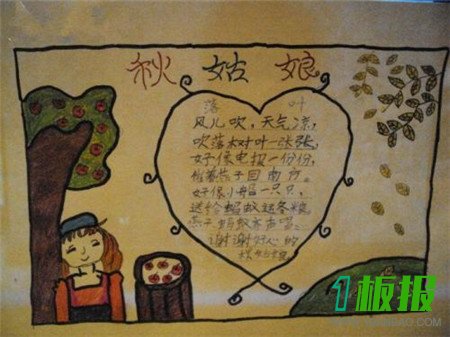 秋姑娘
落叶
风儿吹，天气凉，
吹落树叶一张张，
好像电报一份份，
催着燕子回南方。
好像小船一只只，
送给蚂蚁运冬粮
燕子蚂蚁齐声唱
谢谢好心的
秋姑娘
1板报